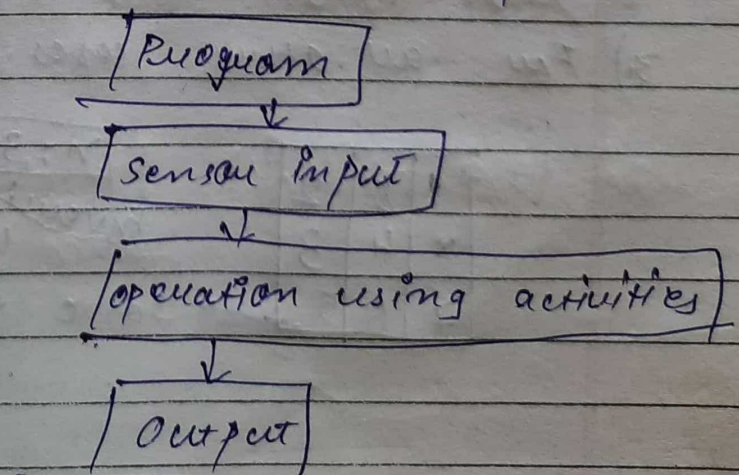 Program
Sensor input
operation using activities
Output